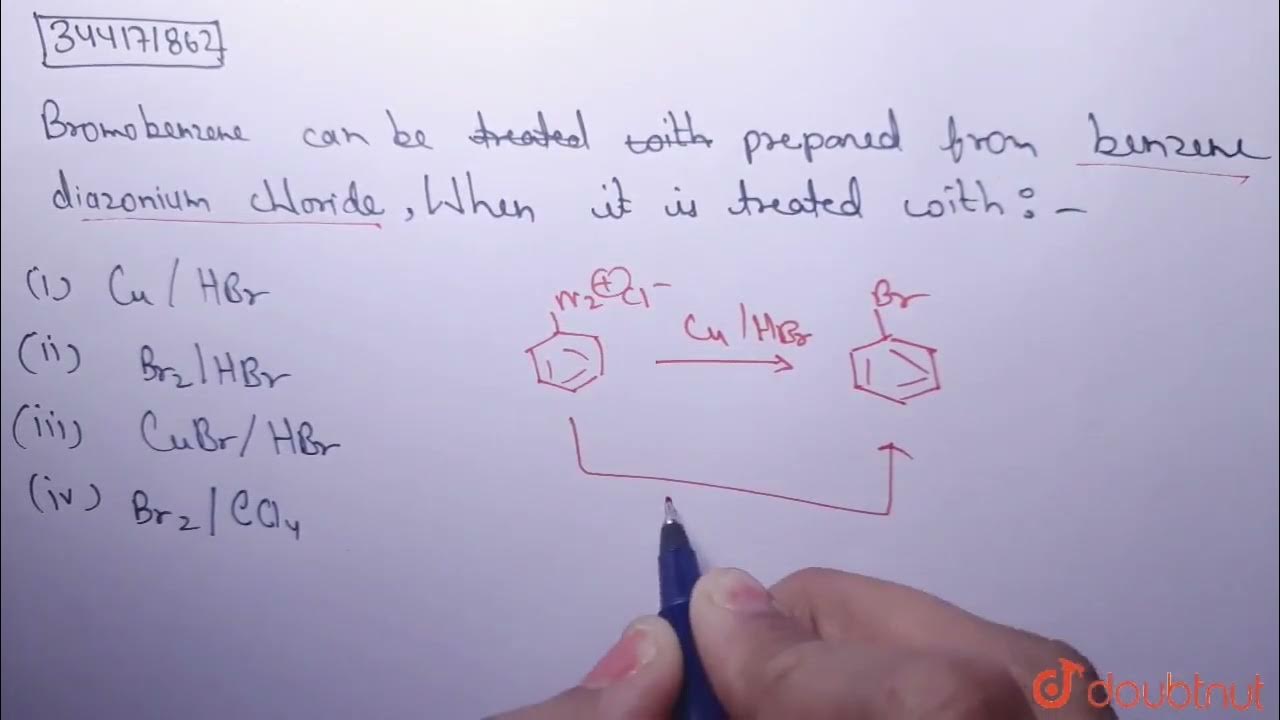 344171862
Bromobenzene can be treated with prepared from benzene
diazonium chloride, When it is treated with : -
(i) Cu / HBr
(ii) Br2/HBr
(iii) CuBr/ HBr
(iv) Br2/CCl4
N2⊕Cl-
Cu/HBr
Br
doubtnut